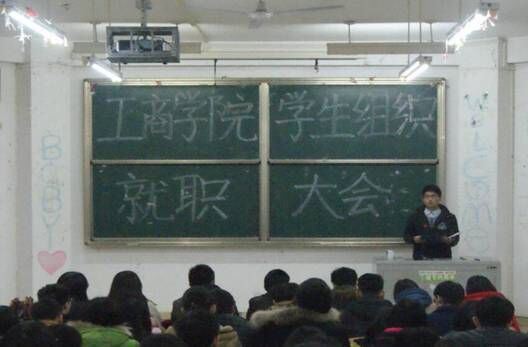 工商学院 学生组织
就职 大会
BABY
Welcome